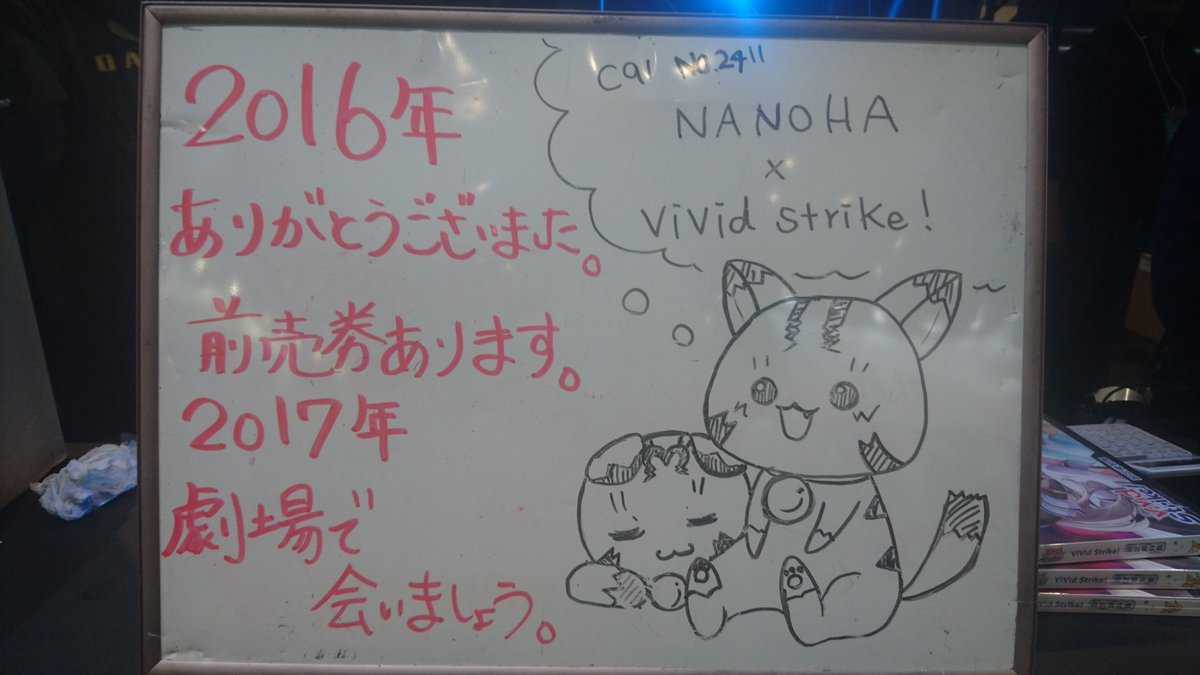 2016年
ありがとうございました。
前売券あります。
2017年
劇場で
会いましょう。
C91 No.2411
NANOHA
x
ViVid Strike!
ViVid Strike!
ViVid Strike!
ViVid Strike!